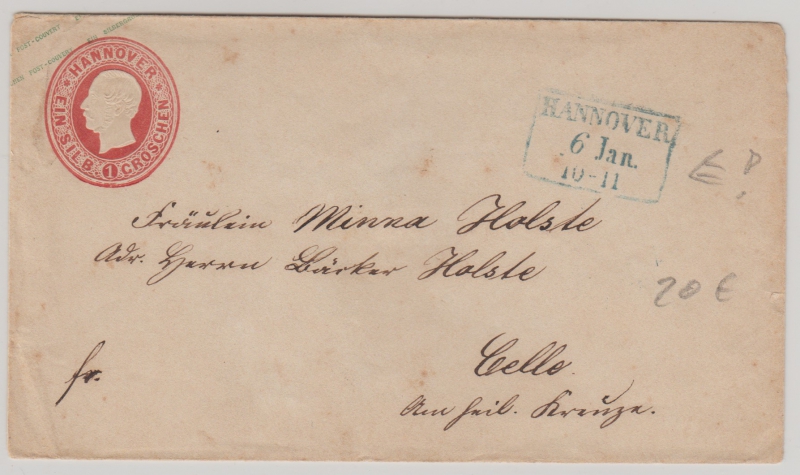 POST-COUVERT
POST-COUVERT
HANNOVER
EIN SILB. 1 GROSCHEN
HANNOVER
6 Jan.
10-11
Fräulein Minna Holste
Adr. Herrn Bäcker Holste
fr.
Celle.
Am heil. Kreuze.
20 €